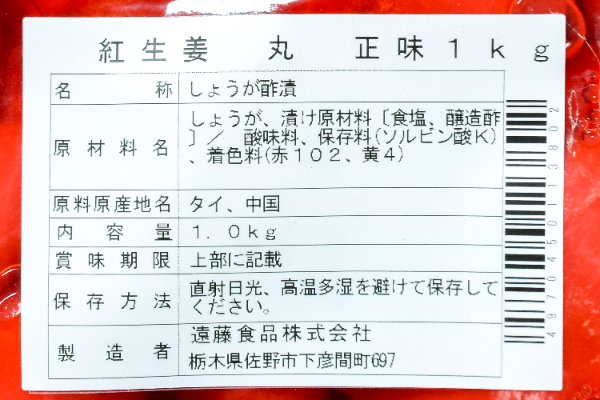 紅生姜 丸 正味1kg
名称 しょうが酢漬
原材料名 しょうが、漬け原材料〔食塩、醸造酢
〕/ 酸味料、保存料(ソルビン酸K)
、着色料(赤102、黄4)
原料原産地名 タイ、中国
内容量 1.0kg
賞味期限 上部に記載
保存方法 直射日光、高温多湿を避けて保存して
ください。
製造者 遠藤食品株式会社
栃木県佐野市下彦間町697
4970450113802